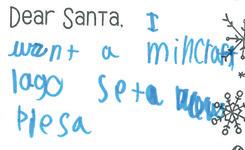 Dear Santa, I
want a mincraft
lago seta
plesa